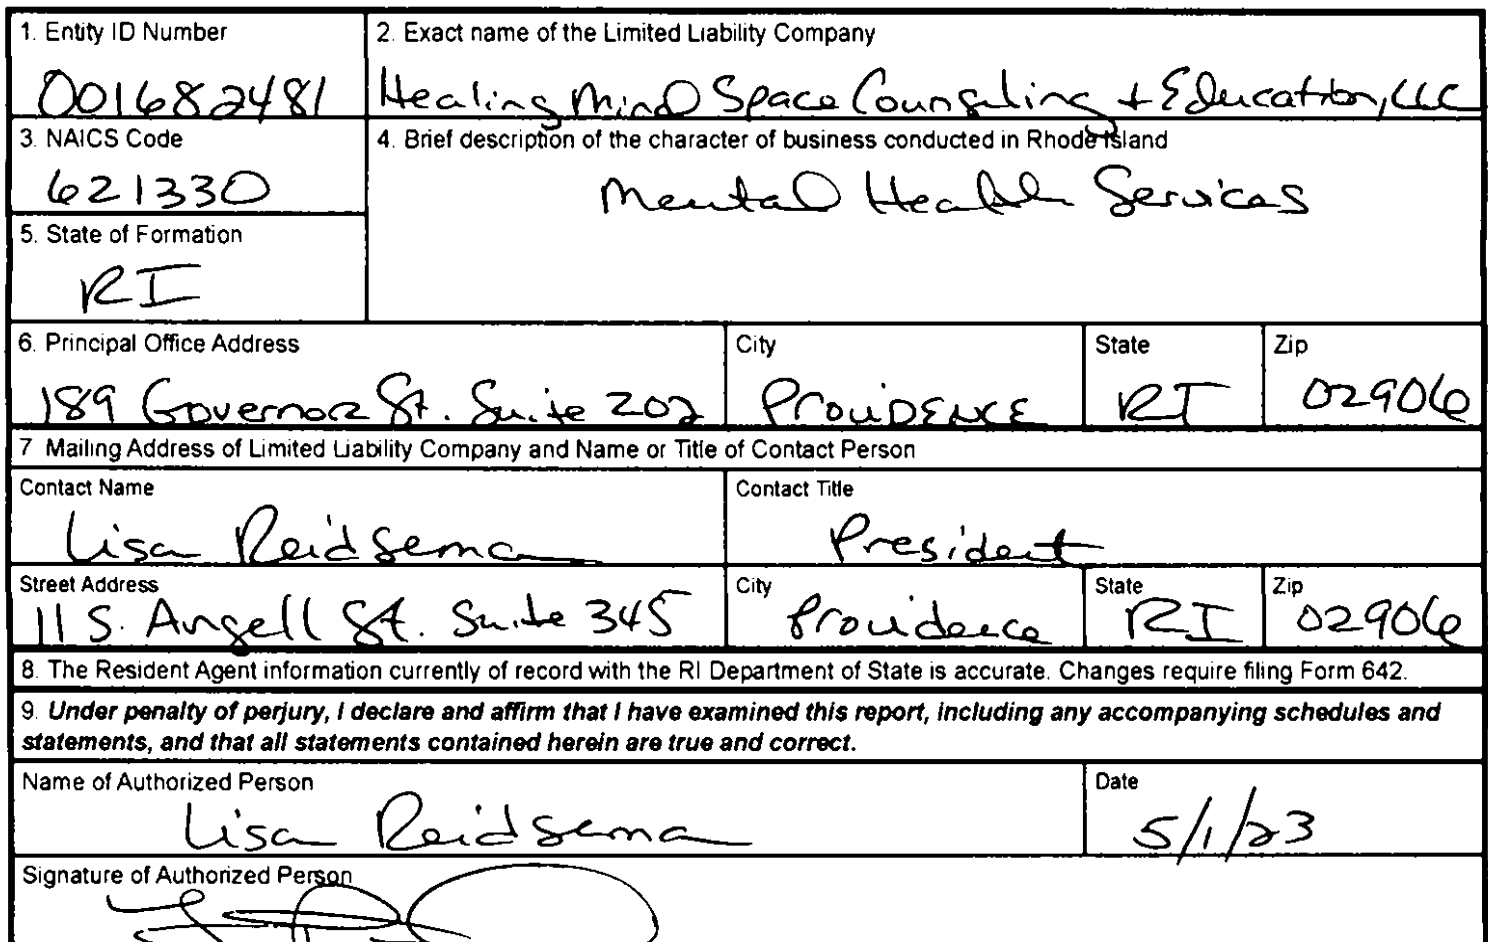 1. Entity ID Number 2. Exact name of the Limited Liability Company
001682481 Healing Mind Space Counseling + Education, LLC
3. NAICS Code 4. Brief description of the character of business conducted in Rhode Island
621330 Mental Health Services
5. State of Formation
RI
6. Principal Office Address City State Zip
189 Governor St. Suite 202 Providence RI 02906
7 Mailing Address of Limited Liability Company and Name or Title of Contact Person
Contact Name Contact Title
Lisa Reidsema President
Street Address City State Zip
11 S. Angell St. Suite 345 Providence RI 02906
8. The Resident Agent information currently of record with the RI Department of State is accurate. Changes require filing Form 642.
9. Under penalty of perjury, I declare and affirm that I have examined this report, including any accompanying schedules and
statements, and that all statements contained herein are true and correct.
Name of Authorized Person Date
Lisa Reidsema 5/1/23
Signature of Authorized Person